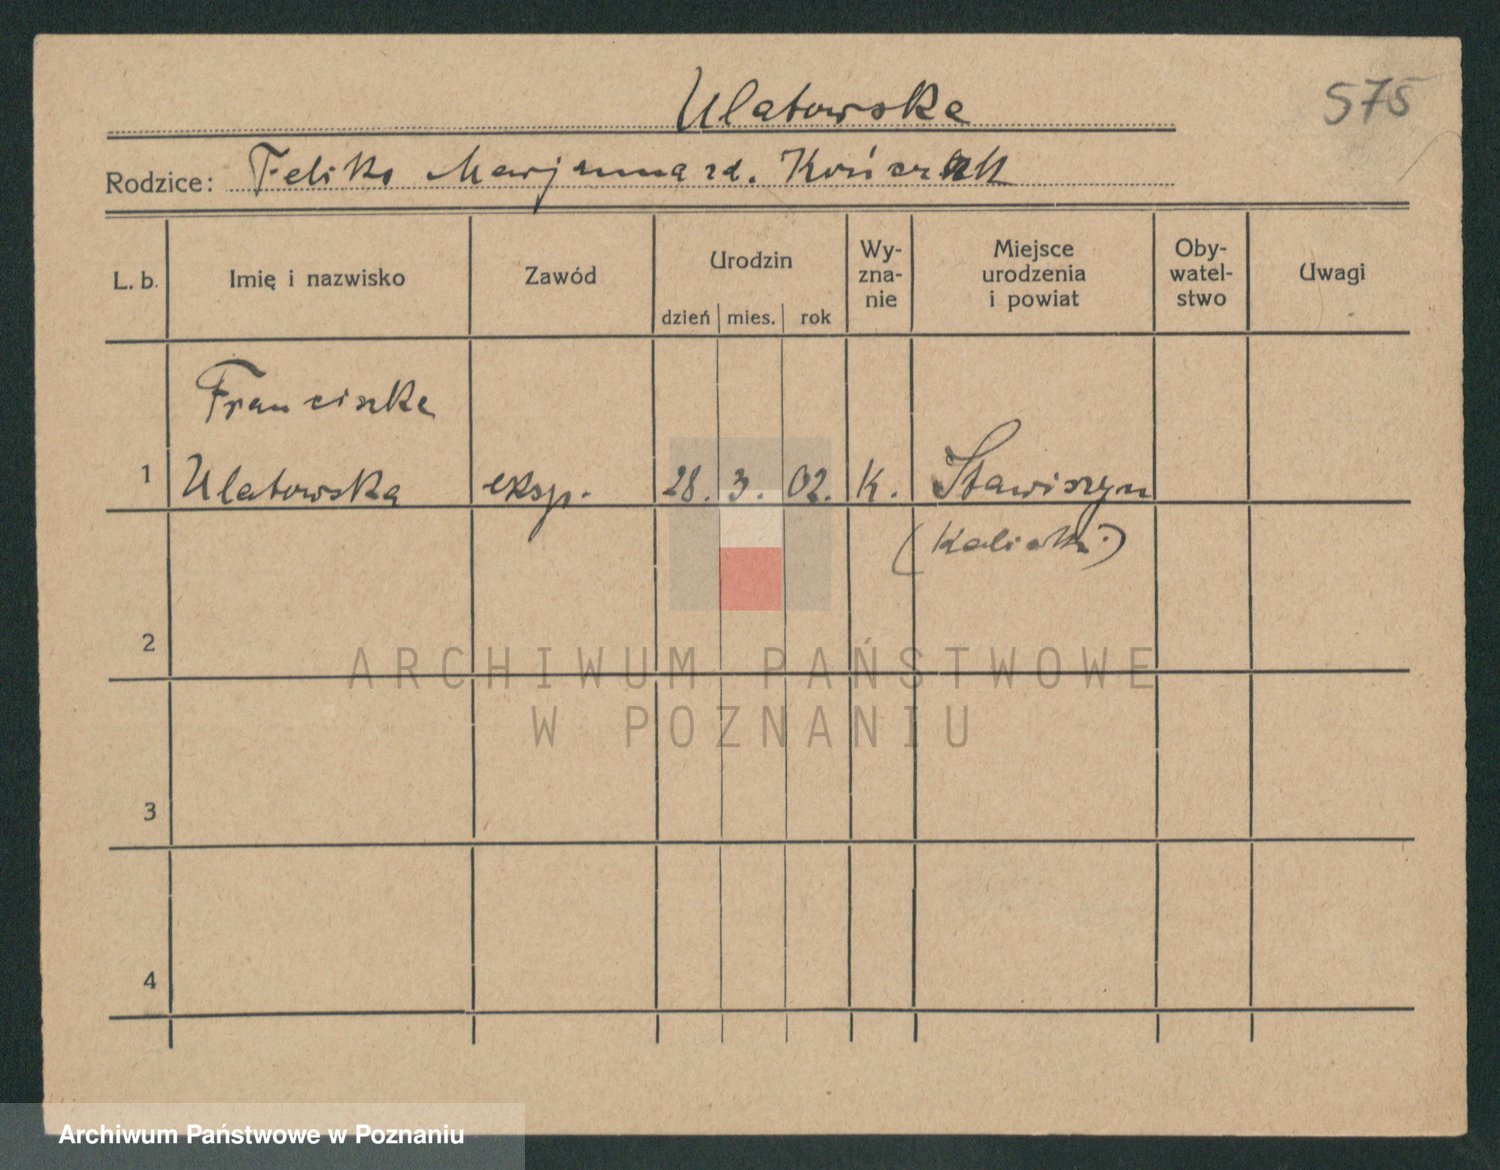 Ulatowska
575
Rodzice: Feliks Marjanna zd.
L. b. Imię i nazwisko Zawód Urodzin dzień mies. rok Wy-zna-nie Miejsce urodzenia i powiat Oby-watel-stwo Uwagi
Franciszka
1 Ulatowska eksp. 28. 3. 02. K. Stawiszyn
(Kaliski)
2
ARCHIWUM PAŃSTWOWE
W POZNANIU
3
4
Archiwum Państwowe w Poznaniu